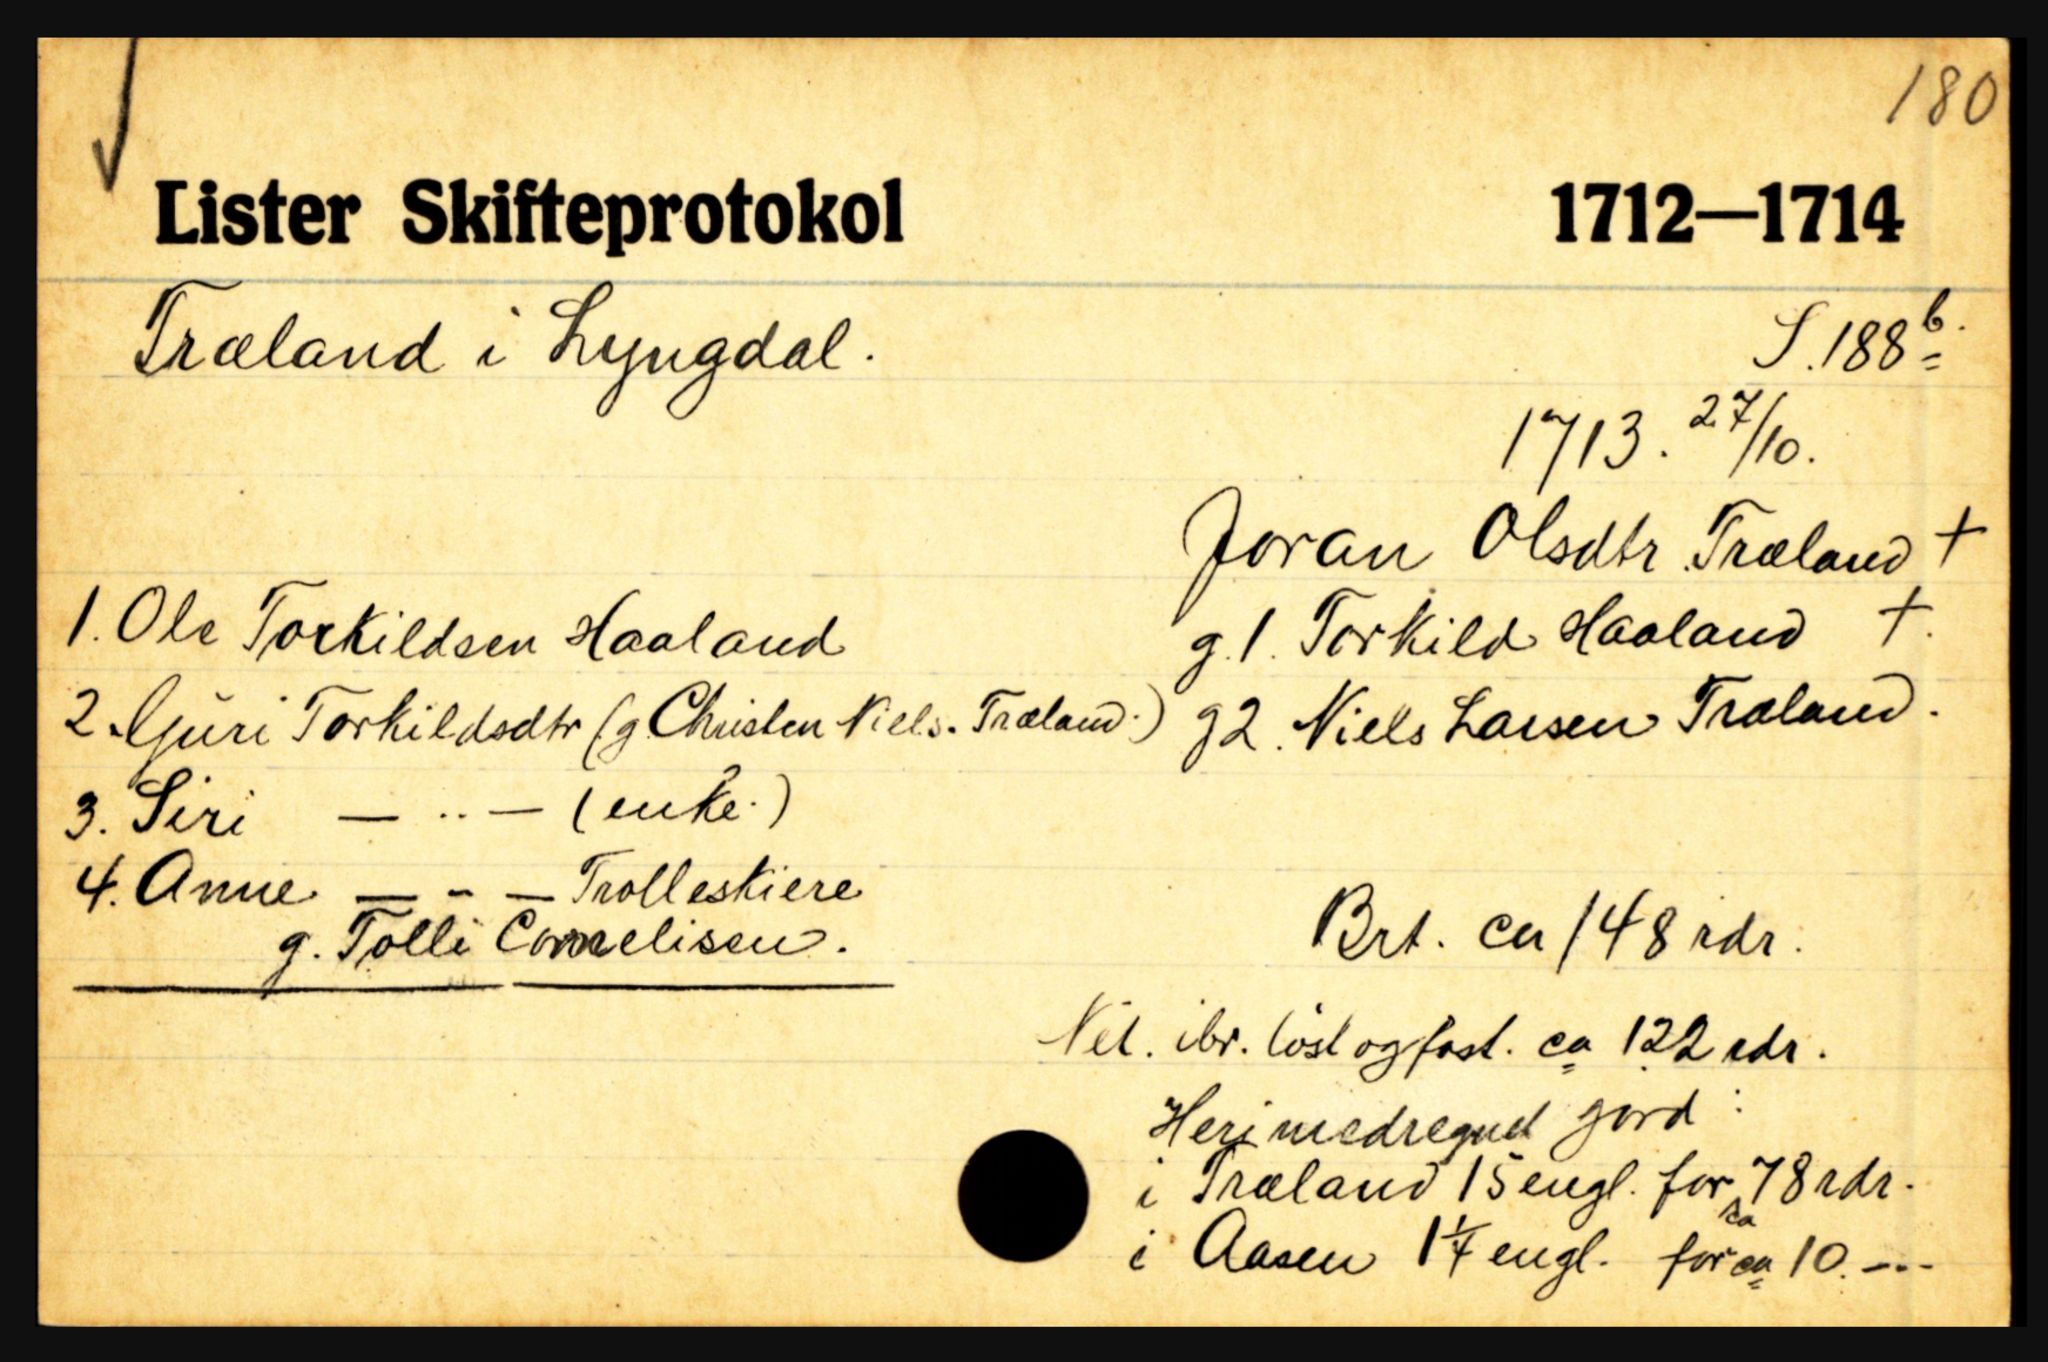 180
Lister Skifteprotokol 1712—1714
Træland i Lyngdal. S. 188b.
1713. 27/10.
Joran Olsdtr Træland †
1. Ole Torkildsen Haaland
g. 1. Torkild Haaland †.
2. Guri Torkildsdtr (g. Christen Niels. Træland.)
g 2. Niels Larsen Træland.
3. Siri — " — (enke.)
4. Anne — " — Trolleskiere
g. Tolli Cornelisen.
Brt. ca 148 rdr.
Net. ibr. löst og fast. ca 122 rdr.
Heri medregnet jord:
i Træland 15 engl. for ca 78 rdr.
i Aasen 1 1/7 engl. for ca 10. ---